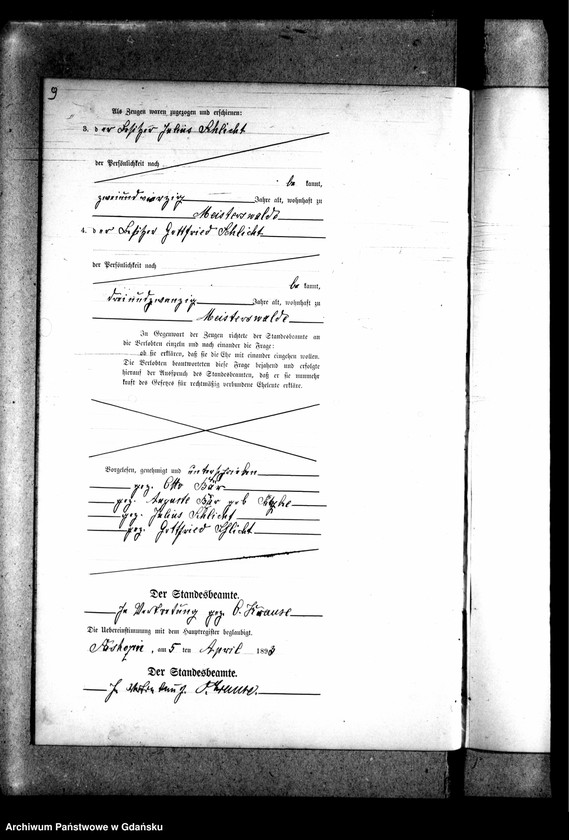 9
Als Zeugen waren zugezogen und erschienen:
3. der Besitzer Julius Schlicht
der Persönlichkeit nach
be kannt,
zweiundvierzig Jahre alt, wohnhaft zu
Meisterswalde
4. der Besitzer Gottfried Schlicht
der Persönlichkeit nach
be kannt,
dreiundzwanzig Jahre alt, wohnhaft zu
Meisterswalde
In Gegenwart der Zeugen richtete der Standesbeamte an
die Verlobten einzeln und nach einander die Frage:
ob sie erklären, daß sie die Ehe mit einander eingehen wollen.
Die Verlobten beantworteten diese Frage bejahend und erfolgte
hierauf der Ausspruch des Standesbeamten, daß er sie nunmehr
kraft des Gesetzes für rechtmäßig verbundene Eheleute erkläre.
Vorgelesen, genehmigt und unterschrieben
gez. Otto Bär
gez. Auguste Bär geb.
gez. Julius Schlicht
gez. Gottfried Schlicht
Der Standesbeamte.
In Vertretung gez. O. Krause
Die Uebereinstimmung mit dem Hauptregister beglaubigt.
am 5 ten April 1893
Der Standesbeamte.
In Vertretung. O. Krause.
Archiwum Państwowe w Gdańsku